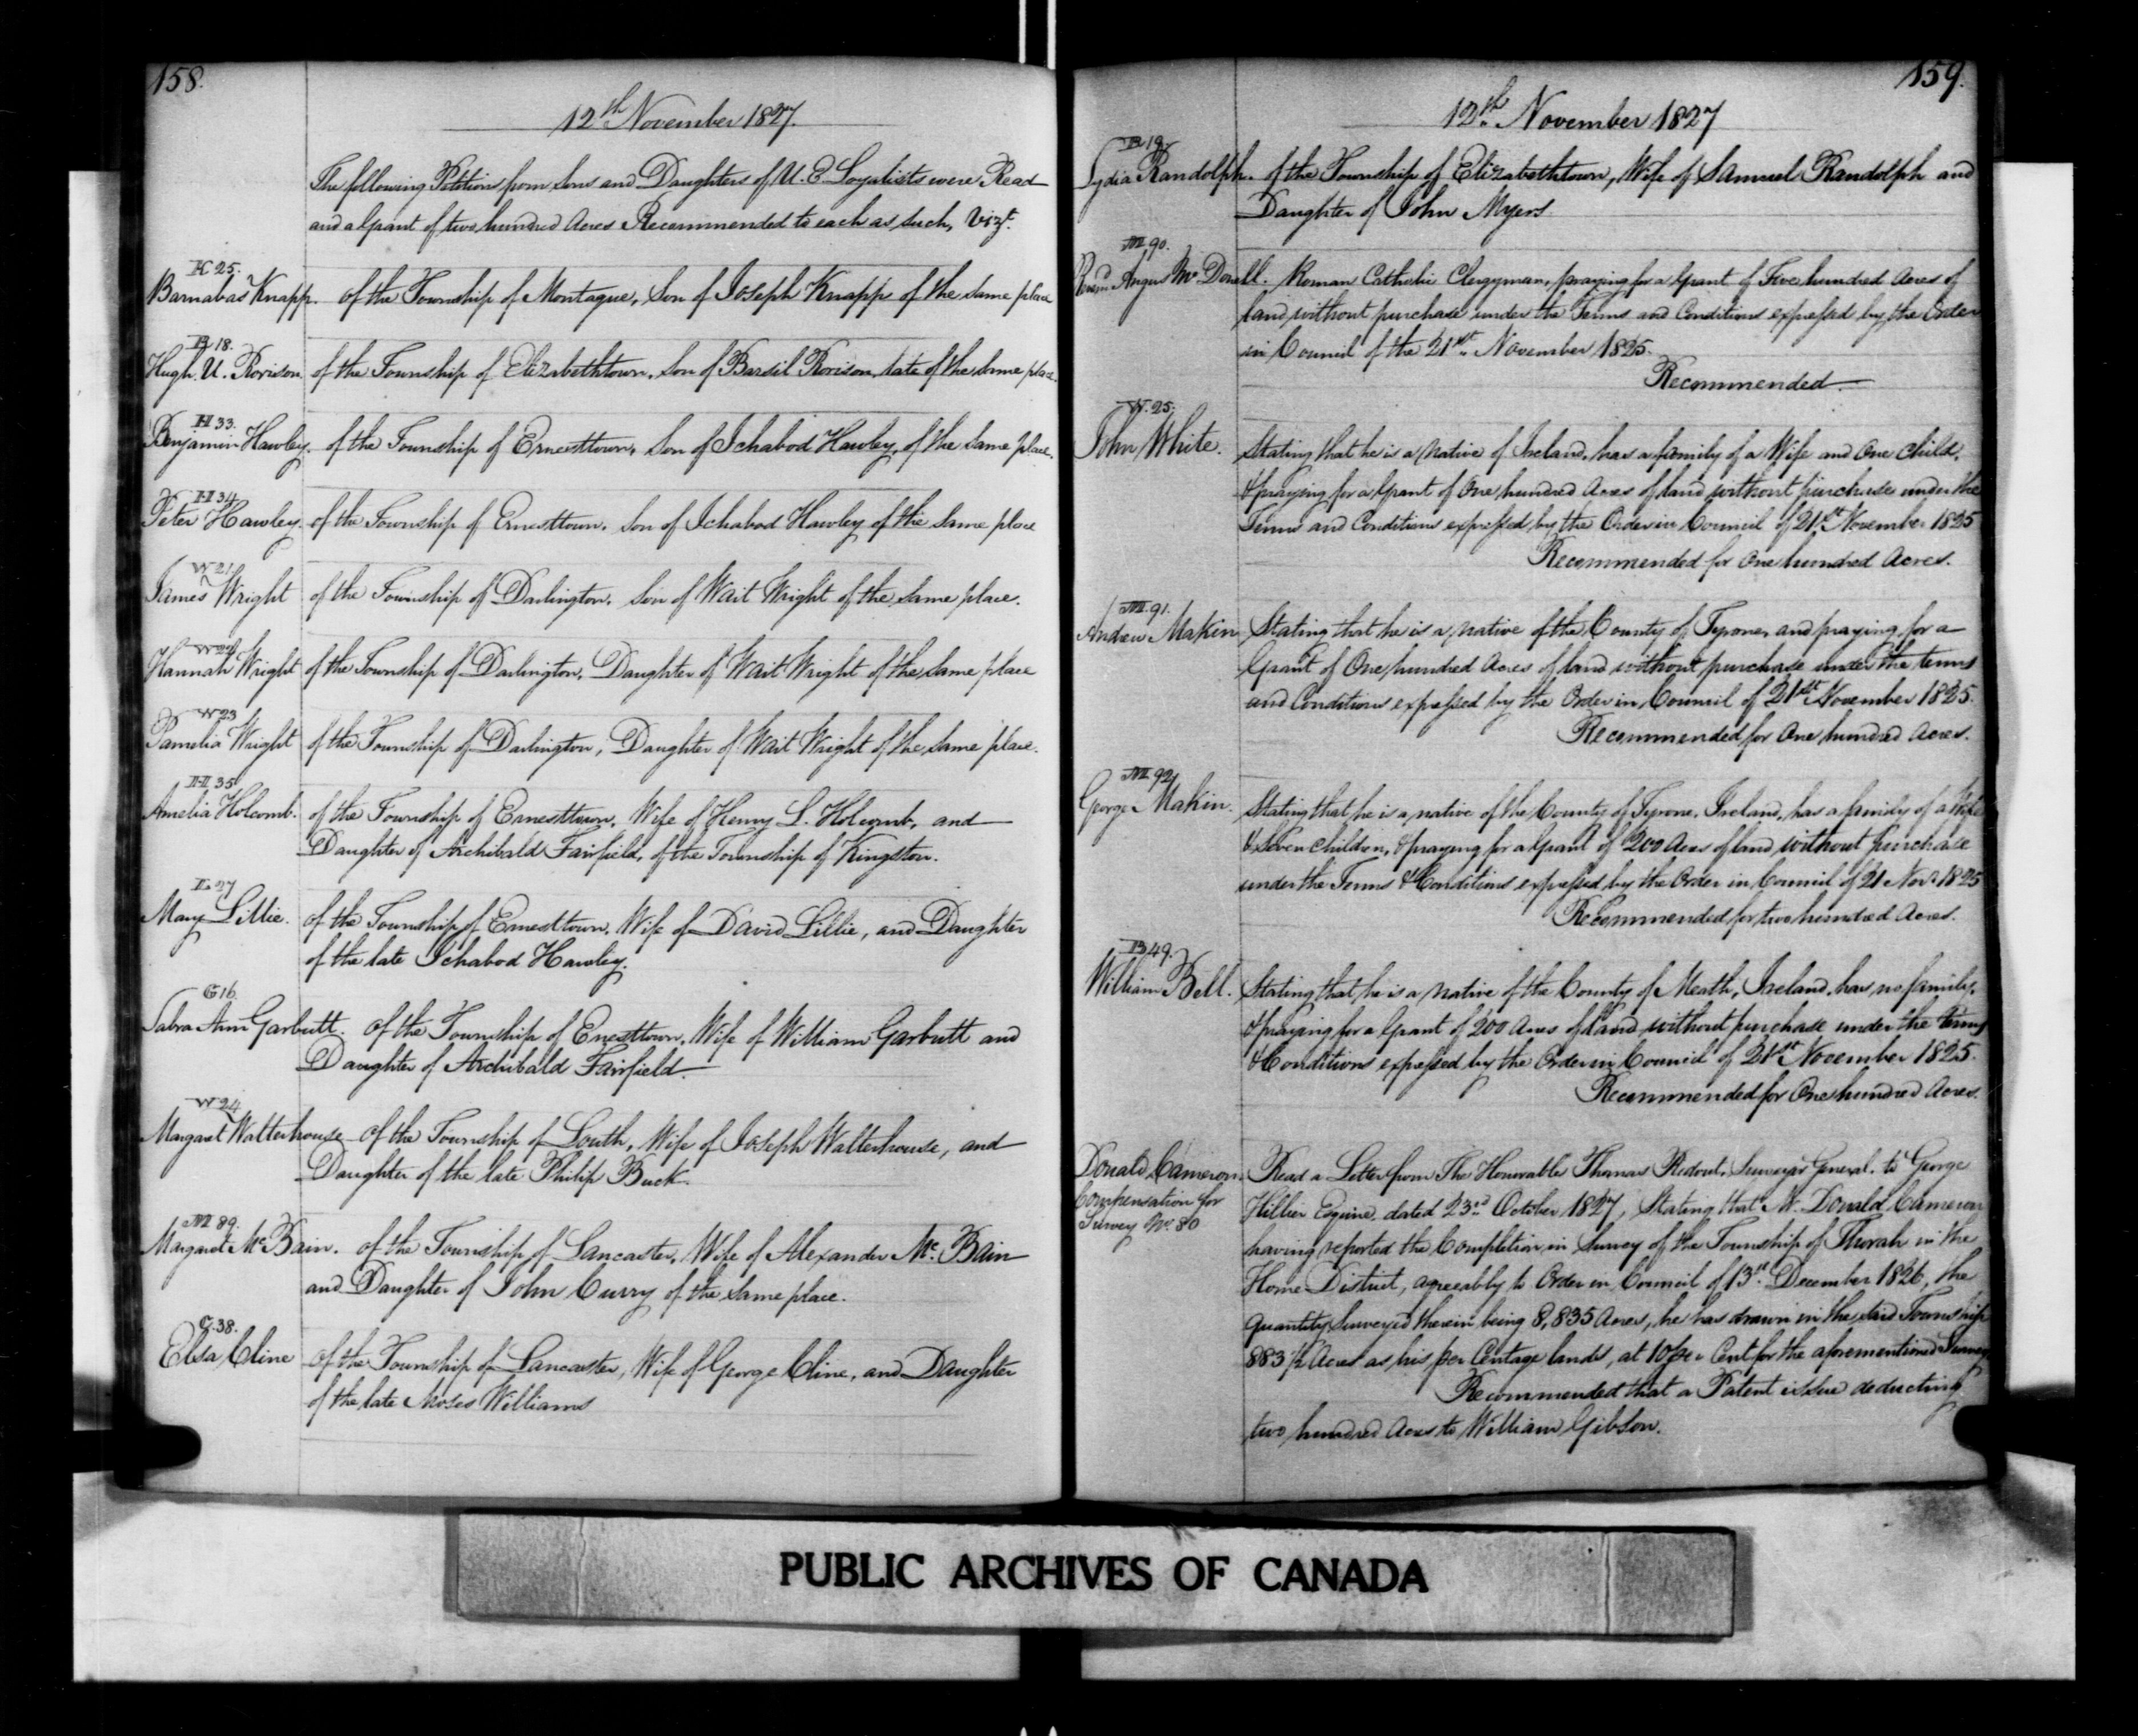 158.
12th November 1827.
The following Petitions from Sons and Daughters of U. E Loyalists were Read
and a Grant of two hundred Acres Recommended to each as such, Vizt.
K 25.
Barnabas Knapp. of the Township of Montague, Son of Joseph Knapp of the same place
R 18.
Hugh U. Rorison of the Township of Elizabethtown, Son of Basil Rorison, late of the same place.
H 33.
Benjamin Hawley. of the Township of Ernesttown, Son of Ichabod Hawley, of the same place.
H 34
Peter Hawley. of the Township of Ernesttown. Son of Ichabod Hawley of the same place
W 21
James Wright of the Township of Darlington. Son of Wait Wright of the same place.
W 22
Hannah Wright of the Township of Darlington, Daughter of Wait Wright of the same place
W 23
Pamelia Wright of the Township of Darlington, Daughter of Wait Wright of the same place.
H 35
Amelia Holcomb. of the Township of Ernesttown, Wife of Henry L. Holcomb, and
Daughter of Archibald Fairfield, of the Township of Kingston.
L 27
Mary Lillie. of the Township of Ernesttown, Wife of David Lillie, and Daughter
of the late Ichabod Hawley.
G 16.
Sabra Ann Garbutt. of the Township of Ernesttown, Wife of William Garbutt and
Daughter of Archibald Fairfield.
W 24
Margaret Watterhouse of the Township of Louth, Wife of Joseph Watterhouse, and
Daughter of the late Philip Buck.
M 89.
Margaret McBain. of the Township of Lancaster, Wife of Alexander Mc. Bain
and Daughter of John Curry of the same place.
C. 38.
Elsa Cline of the Township of Lancaster, Wife of George Cline, and Daughter
of the late Moses Williams
159.
12th November 1827
R 19.
Lydia Randolph. of the Township of Elizabethtown, Wife of Samuel Randolph and
Daughter of John Myers
M 90.
Angus Mc Donell. Roman Catholic Clergyman, praying for a Grant of Five hundred Acres of
land without purchase under the Terms and Conditions expressed by the Order
in Council of the 21st November 1825.
Recommended.
W. 25.
John White. Stating that he is a native of Ireland, has a family of a Wife and One child,
& praying for a Grant of One hundred Acres of land without purchase under the
Terms and Conditions expressed by the Order in Council of 21st November 1825
Recommended for One hundred Acres.
M. 91.
Andrew Makin Stating that he is a native of the County of Tyrone, and praying for a
Grant of One hundred Acres of land without purchase under the terms
and Conditions expressed by the Order in Council of 21st November 1825.
Recommended for One hundred Acres.
M 92
George Makin. Stating that he is a native of the County of Tyrone, Ireland, has a family of a Wife
& Seven children, & praying for a Grant of 200 Acres of land without purchase
under the Terms & Conditions expressed by the Order in Council of 21 Novr. 1825
Recommended for two hundred Acres.
B 49.
William Bell. Stating that he is a native of the County of Meath, Ireland, has no family,
& praying for a Grant of 200 Acres of land without purchase under the terms
& Conditions expressed by the Order in Council of 21st November 1825.
Recommended for One hundred Acres.
Donald Cameron. Read a Letter from The Honorable Thomas Ridout, Surveyor General. to George
Compensation for
Survey No. 80
Hillier Esquire dated 23rd October 1827, Stating that Mr. Donald Cameron
having reported the Completion in Survey of the Township of Thorah in the
Home District, agreeably to Order in Council of 13th December 1826, the
quantity Surveyed therein being 8,835 Acres, he has drawn in the said Township
883 1/2 Acres as his per Centage lands, at 10 per Cent for the aforementioned Survey
Recommended that a Patent issue deducting
two hundred Acres to William Gibson.
PUBLIC ARCHIVES OF CANADA